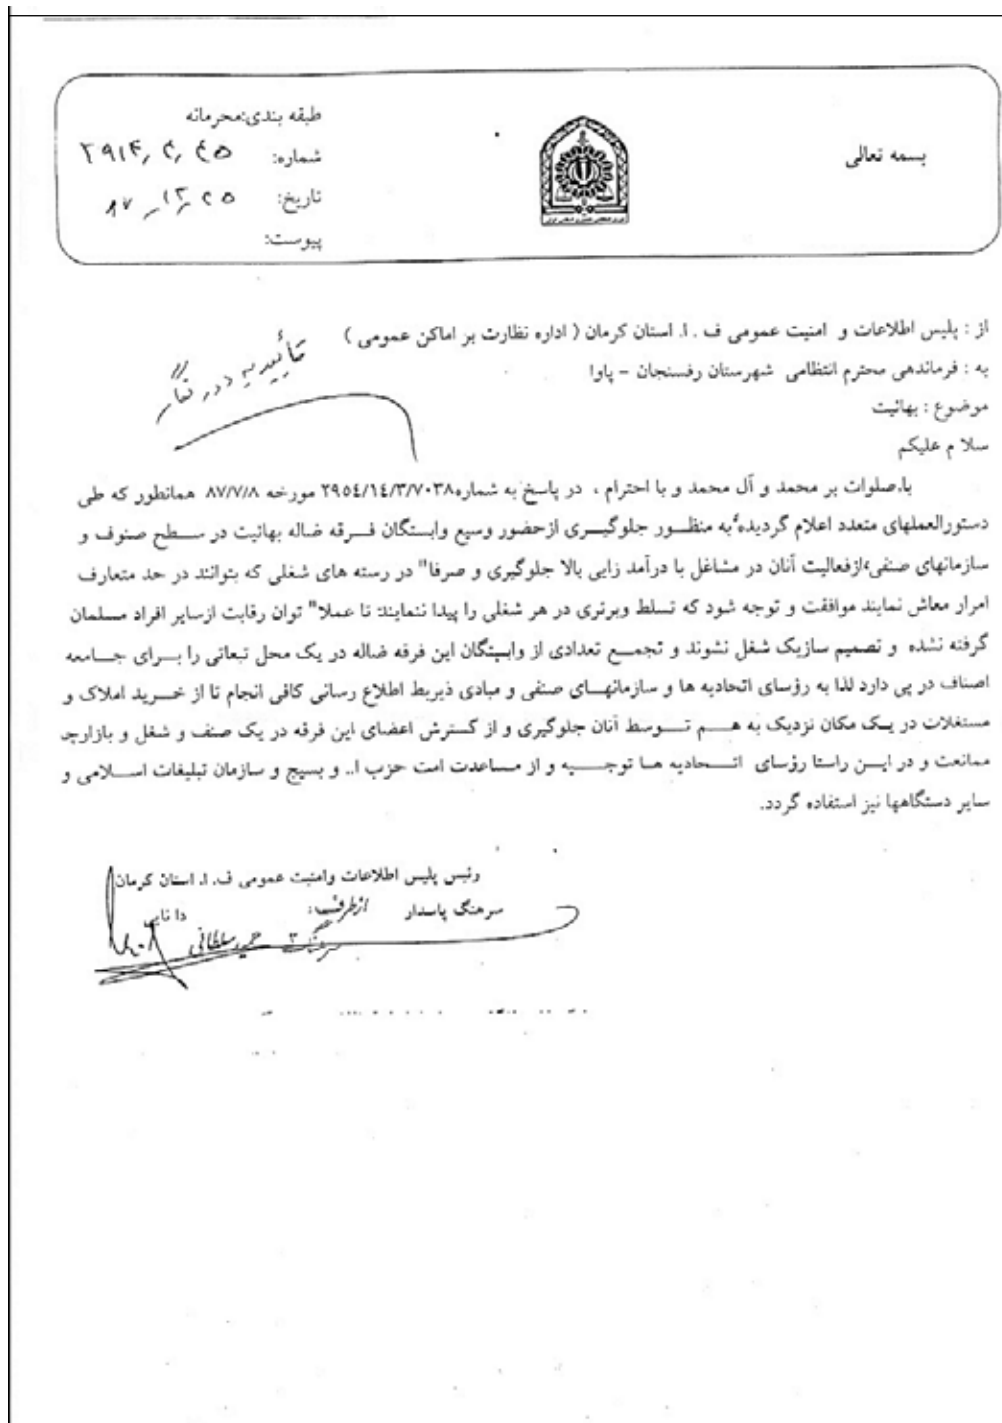 بسمه تعالی
طبقه بندی:محرمانه
شماره:
تاریخ:
پیوست:
از : پلیس اطلاعات و امنیت عمومی ف . ا. استان کرمان ( اداره نظارت بر اماکن عمومی )
به : فرماندهی محترم انتظامی شهرستان رفسنجان – پاوا
موضوع : بهائیت
سلا م علیکم
با.صلوات بر محمد و آل محمد و با احترام ، در پاسخ به شماره۲۹۵٤/۱٤/۳/۷۰۳۸ مورخه ۸۷/۷/۸ همانطور که طی
دستورالعملهای متعدد اعلام گردیده به منظـور جلوگیـــری ازحضور وسیع وابستگان فـــرقه ضاله بهائیت در ســـطح صنوف و
سازمانهای صنفی،ازفعالیت آنان در مشاغل با درآمد زایی بالا جلوگیری و صرفا" در رسته های شغلی که بتوانند در حد متعارف
امرار معاش نمایند موافقت و توجه شود که تسلط وبرتری در هر شغلی را پیدا ننمایند تا عملا" توان رقابت ازسایر افراد مسلمان
گرفته نشده و تصمیم سازیک شغل نشوند و تجمـــع تعدادی از وابستگان این فرقه ضاله در یک محل تبعاتی را بـــرای جـــامعه
اصناف در پی دارد لذا به رؤسای اتحادیه ها و سازمانهـــای صنفی و مبادی ذیربط اطلاع رسانی کافی انجام تا از خـــرید املاک و
مستغلات در یـک مکان نزدیک به هـــم تـــوسط آنان جلوگیری و از گسترش اعضای این فرقه در یک صنف و شغل و بازارچه
ممانعت و در ایـــن راستا رؤسای اتـــحادیه هـا توجـــیه و از مساعدت امت حزب ا.. و بسیج و سازمان تبلیغات اســـلامی و
سایر دستگاهها نیز استفاده گردد.
رئیس پلیس اطلاعات وامنیت عمومی ف. ا. استان کرمان
سرهنگ پاسدار ازطرف: دانایی